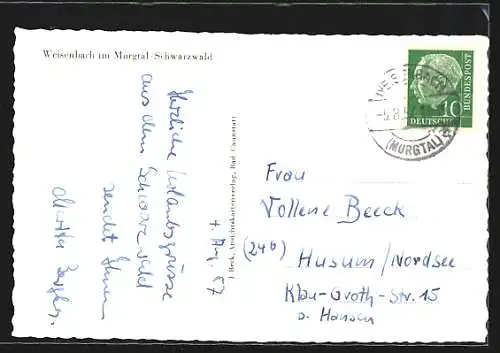 Weisenbach im Murgtal/Schwarzwald
Herzliche Urlaubsgrüsse
aus dem Schwarzwald
sendet Ihnen
4. Aug. 57
J. Beck, Ansichtskartenverlag, Bad Cannstatt
WEISENBACH
(MURGTAL)
10
DEUTSCHE
BUNDESPOST
Frau
Vollene Beeck
(24b)
Husum/Nordsee
Klau-Groth-Str. 15
b. Hansen